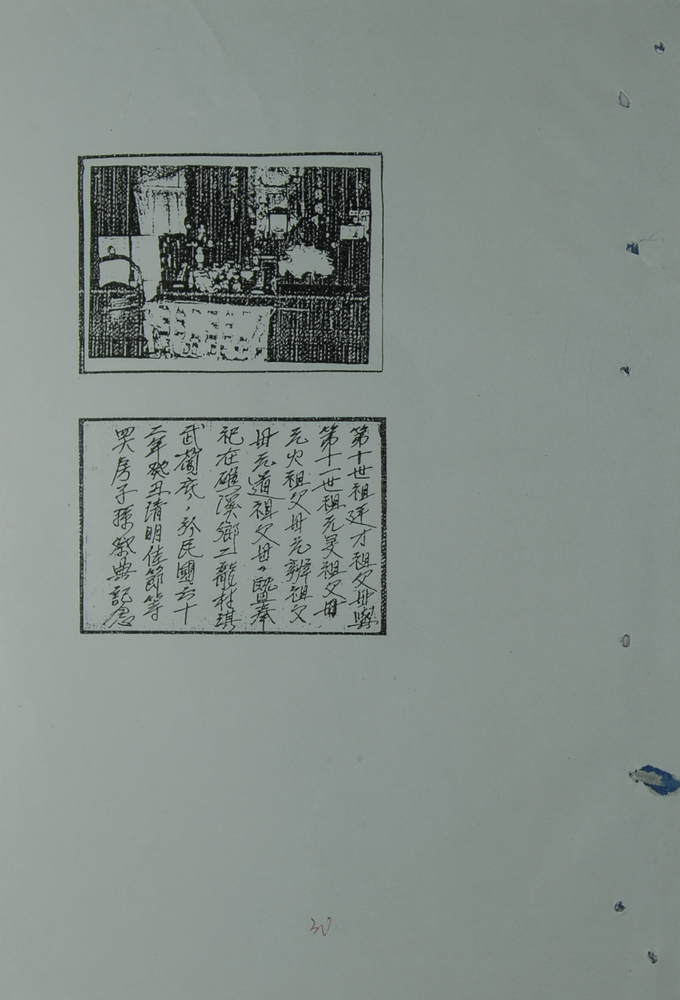 第十世祖廷才祖父母與
第十一世祖元旻祖父母
元火祖父母元辦祖父
母元道祖父母。既奉
祀在礁溪鄉二龍村淇
武蘭底，於民國六十
二年癸丑清明佳節等
四大房子孫祭典記念
30